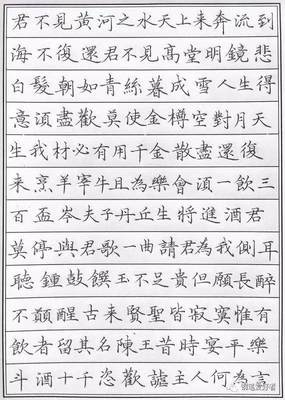 君不見黃河之水天上来奔流到
海不復還君不見髙堂明鏡悲
白髮朝如青絲暮成雪人生得
意湏盡歡莫使金樽空對月天
生我材必有用千金散盡還復
来烹羊宰牛且為樂會湏一飲三
百盃岑夫子丹丘生將進酒君
莫停與君歌一曲請君為我側耳
聽鍾鼓饌玉不足貴但願長醉
不願醒古来賢聖皆寂寞惟有
飲者留其名陳王昔時宴平樂
斗酒十千恣歡謔主人何為言